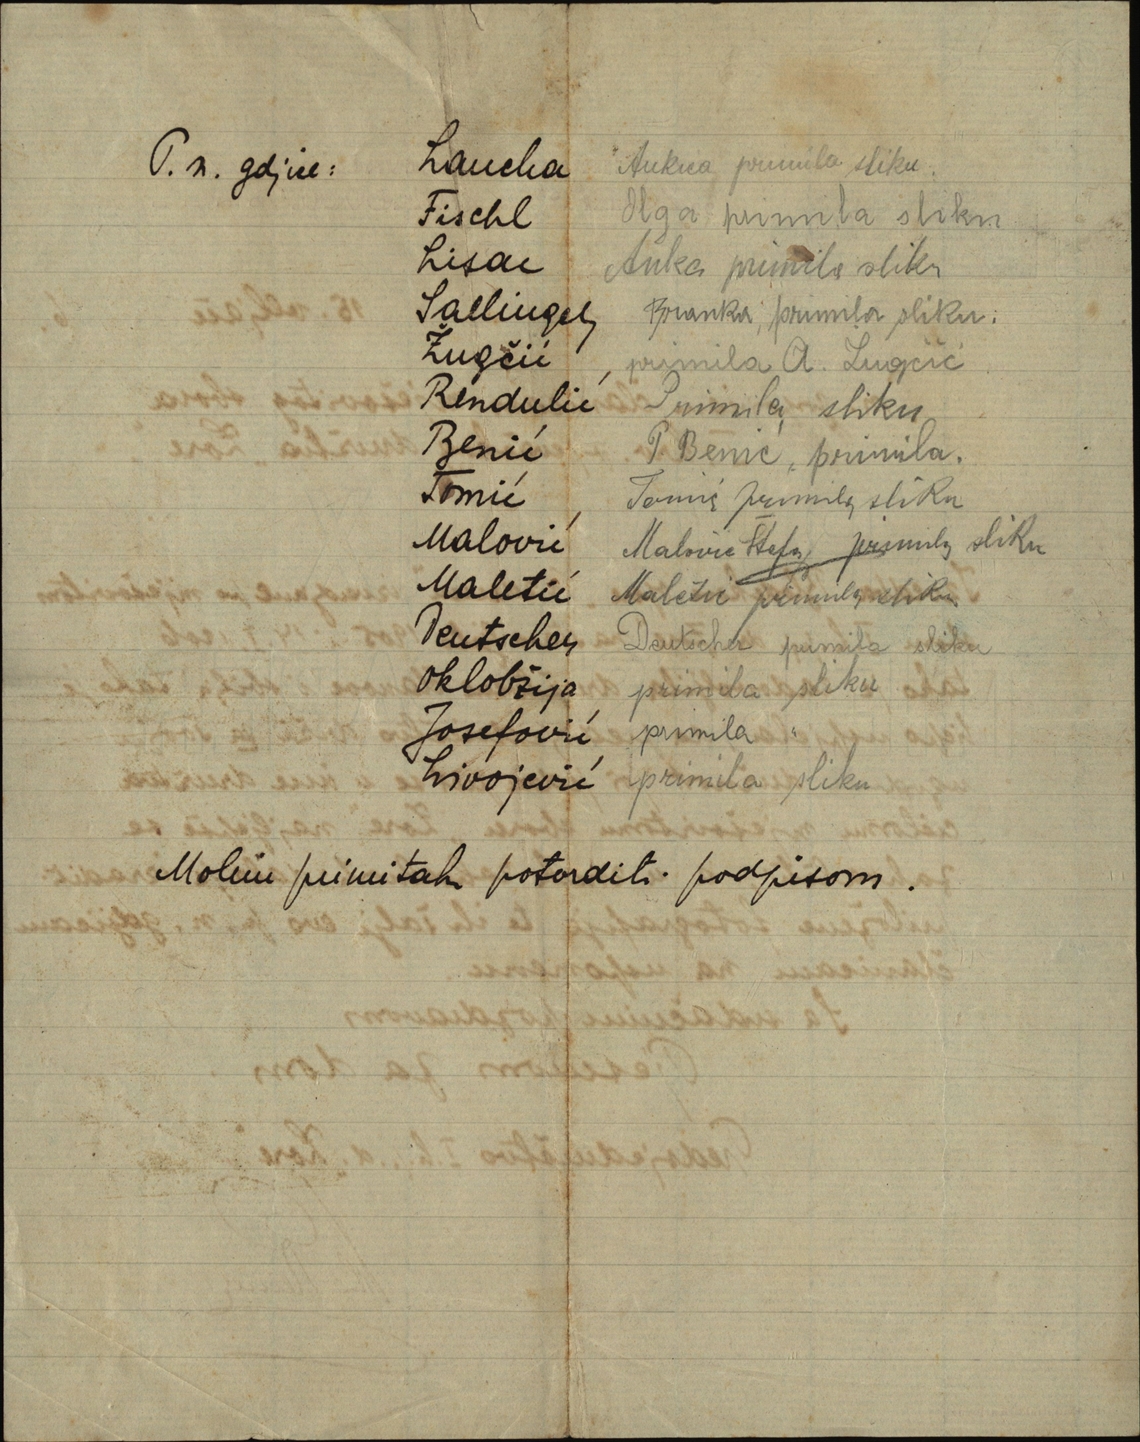 P. n. gdjice: Laucha Ankica primila sliku.
Fischl Olga primila sliku
Lisac Anka primila sliku
Sallinger Branka, primila sliku.
Žugčić, primila A. Žugčić
Rendulić Primila sliku
Benić P Benić, primila.
Tomić, Tomić primila sliku
Malović Malović Štefa primila sliku
Maletić Maletić primila sliku
Deutscher Deutscher primila sliku
Oklobžija primila sliku
Josefović primila "
Livojević primila sliku
Molim primitak potvrditi podpisom.